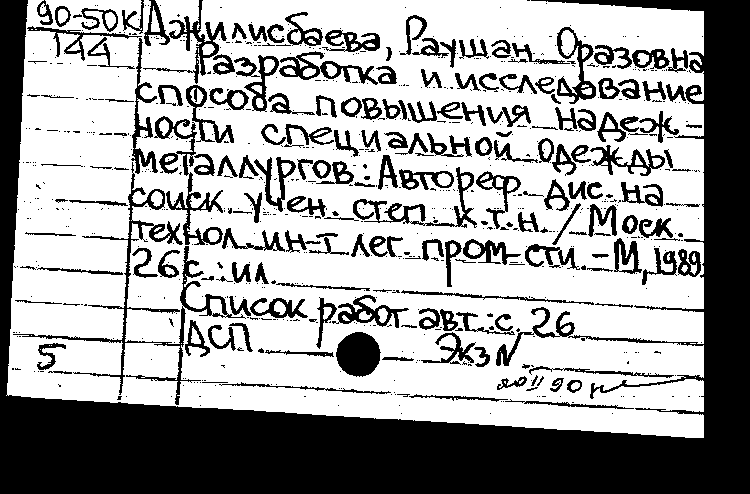 90-50К Джилисбаева, Раушан Оразовна
144 Разработка и исследование
способа повышения надеж-
ности специальной одежды
металлургов: Автореф. дис. на
соиск. учен. степ. к.т.н. / Моск.
технол. ин-т лег. пром-сти. - М, 1989.
26 с. : ил.
Список работ авт.: с. 26
ДСП. Экз N
5